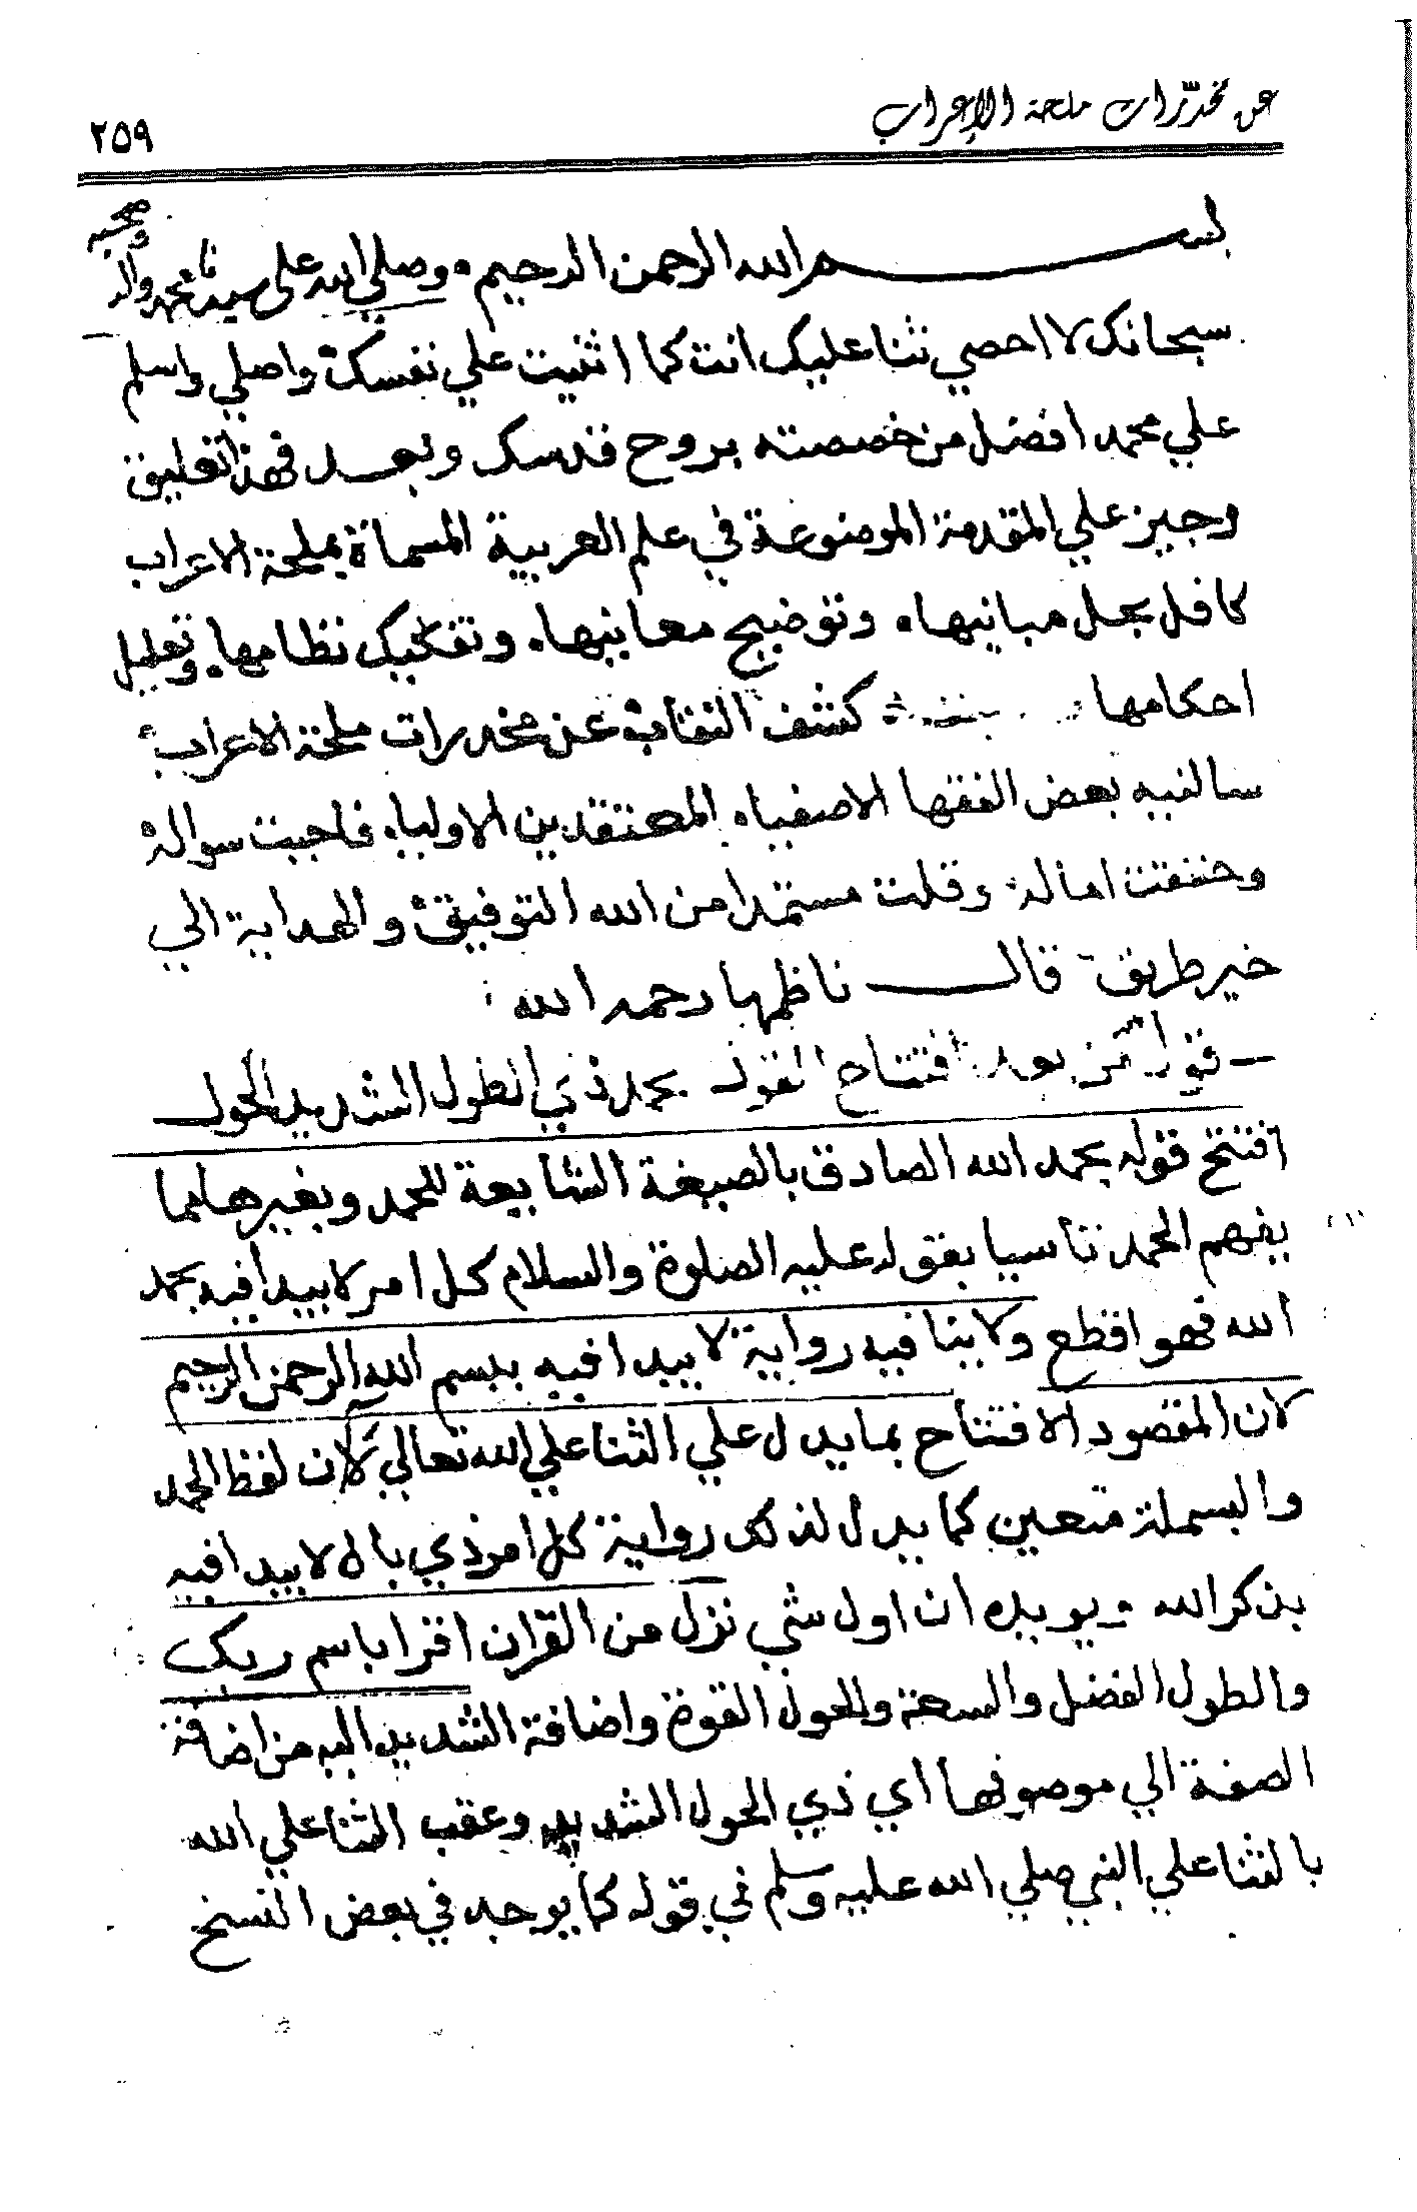 عن مخدّرات ملحة الإعراب
٢٥٩
بسم الله الرحمن الرحيم وصلي الله على سيدنا محمد واله
وصحبه
سبحانك لا احصي ثنا عليك انت كما اثنيت علي نفسك واصلي واسلم
علي محمد افضل من خصصته بروح قدسك وبعد فهذا تعليق
وجيز علي المقدمة الموضوعة في علم العربية المسماة بملحة الاعراب
كافل بحل مبانيها وتوضيح معانيها وتفكيك نظامها وتعليل
احكامها كشف النقاب عن مخدرات ملحة الاعراب
سالنيه بعض الفقها الاصفياء المعتقدين الاولياء فاجبت سواله
وحققت اماله وقلت مستمدا من الله التوفيق والهداية الي
خير طريق قال ناظمها رحمه الله
قول من بعد افتتاح القول بحمد ذي الطول الشديد الحول
افتتح قوله بحمد الله الصادق بالصيغة الشايعة للحمد وبغيرها مما
يفهم الحمد تاسيا بقوله عليه الصلوة والسلام كل امر لا يبدا فيه بحمد
الله فهو اقطع ولا ينافيه رواية لا يبدا فيه ببسم الله الرحمن الرحيم
لان المقصود الافتتاح بما يدل علي الثنا علي الله تعالي لا ان لفظ الحمد
والبسملة متعين كما يدل لذلك رواية كل امر ذي بال لا يبدا فيه
بذكر الله ويويده ان اول شي نزل من القرآن اقرا باسم ربك
والطول الفضل والسعة والحول القوة واضافة الشديد اليه من اضافة
الصفة الي موصوفها اي ذي الحول الشديد وعقب الثنا علي الله
بالثنا علي النبي صلي الله عليه وسلم في قوله كما يوجد في بعض النسخ